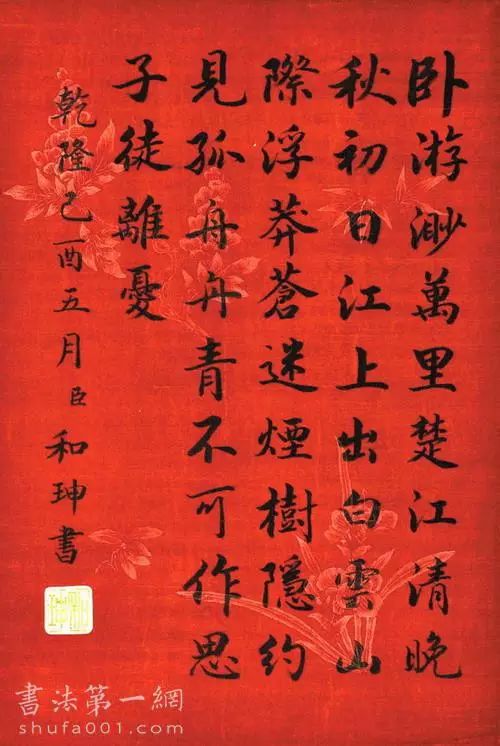 卧游渺萬里楚江清晚
秋初日江上出白雲山
際浮莽蒼迷煙樹隱約
見孤舟舟青不可作思
子徒離憂
乾隆己酉五月臣和珅書
書法第一網
shufa001.com